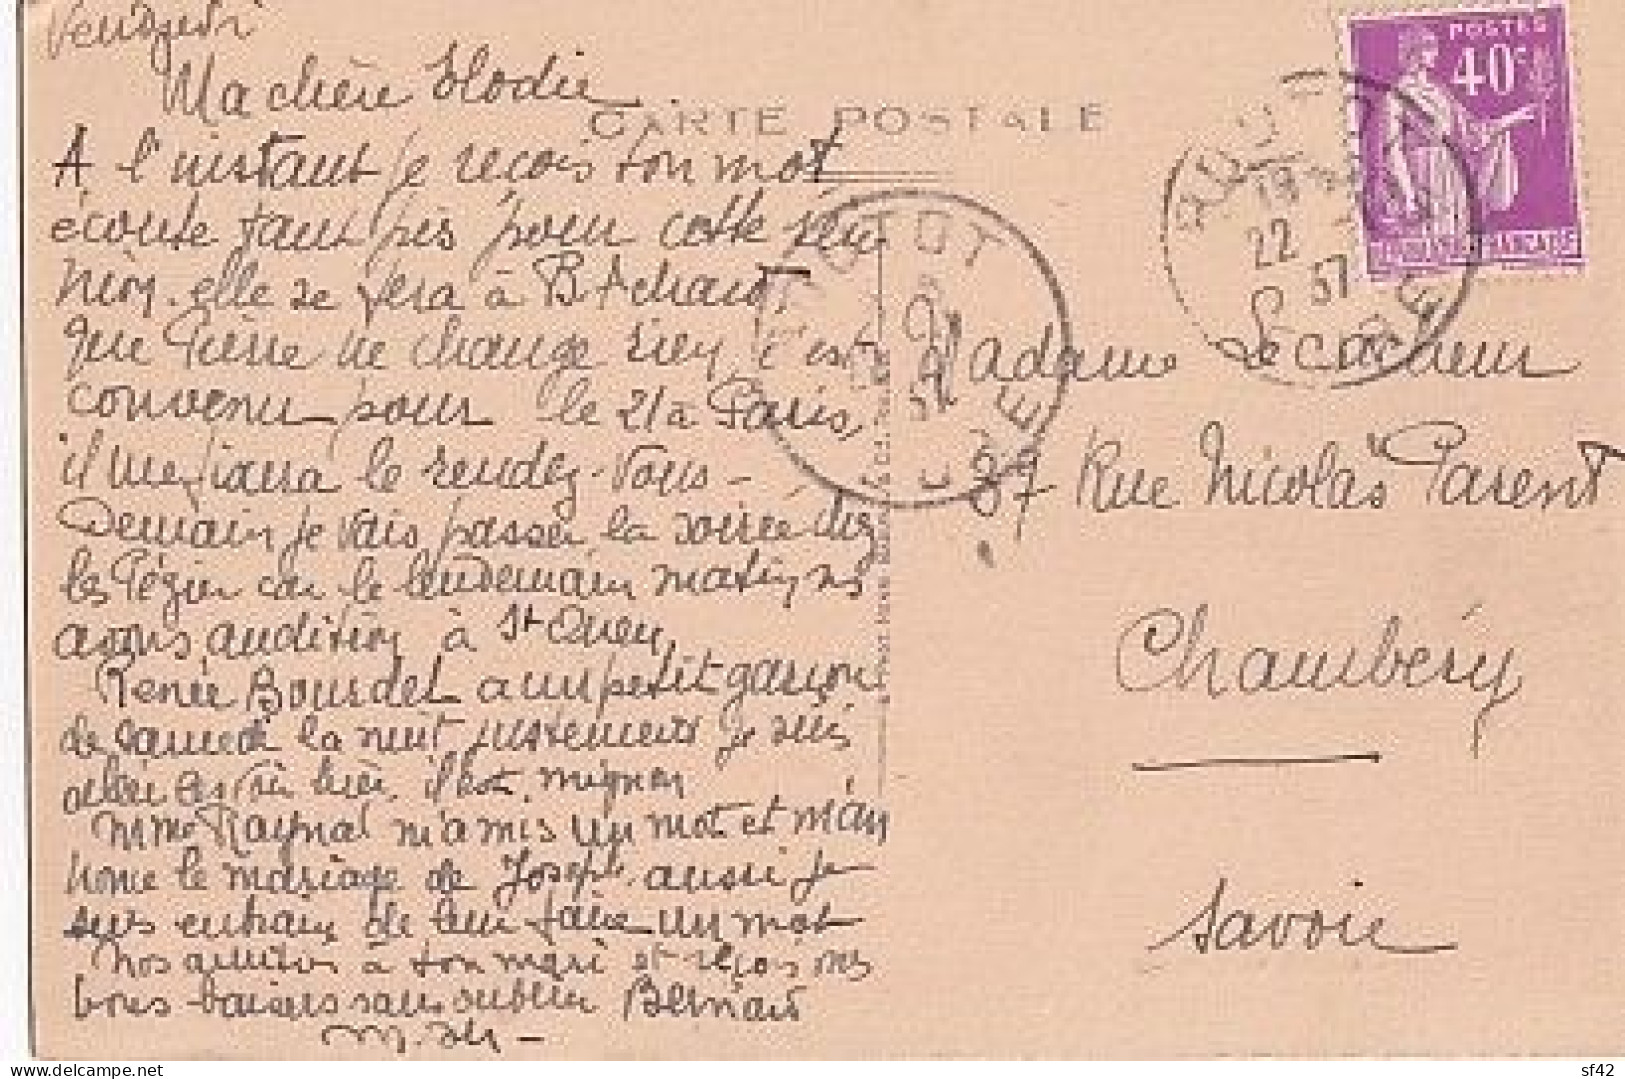 Vendredi
Ma chère Elodie
CARTE POSTALE
A l'instant je reçois ton mot
écoute tant pis pour cette réu
nion, elle se fera à B Achard
que Pierre ne change rien, c'est
convenu pour le 21 à Paris,
il me fixera le rendez-vous -
Demain je vais passer la soirée chez
les Pézier car le lendemain matin ns
avons audition à St Ouen,
Renée Bourdet a un petit garçon
de samedi la nuit justement je suis
allée les voir hier, il est mignon
Mme Raynal m'a mis un mot et m'an
nonce le mariage de Joseph, aussi je
suis entrain de leur faire un mot
Nos amitiés à ton mari et reçois nos
bons baisers sans oublier Bernard
POSTES
40c
22
37
EURE
Madame Lecacheur
37 Rue Nicolas Parent
Chambéry
Savoie
delcampe.net
sf42